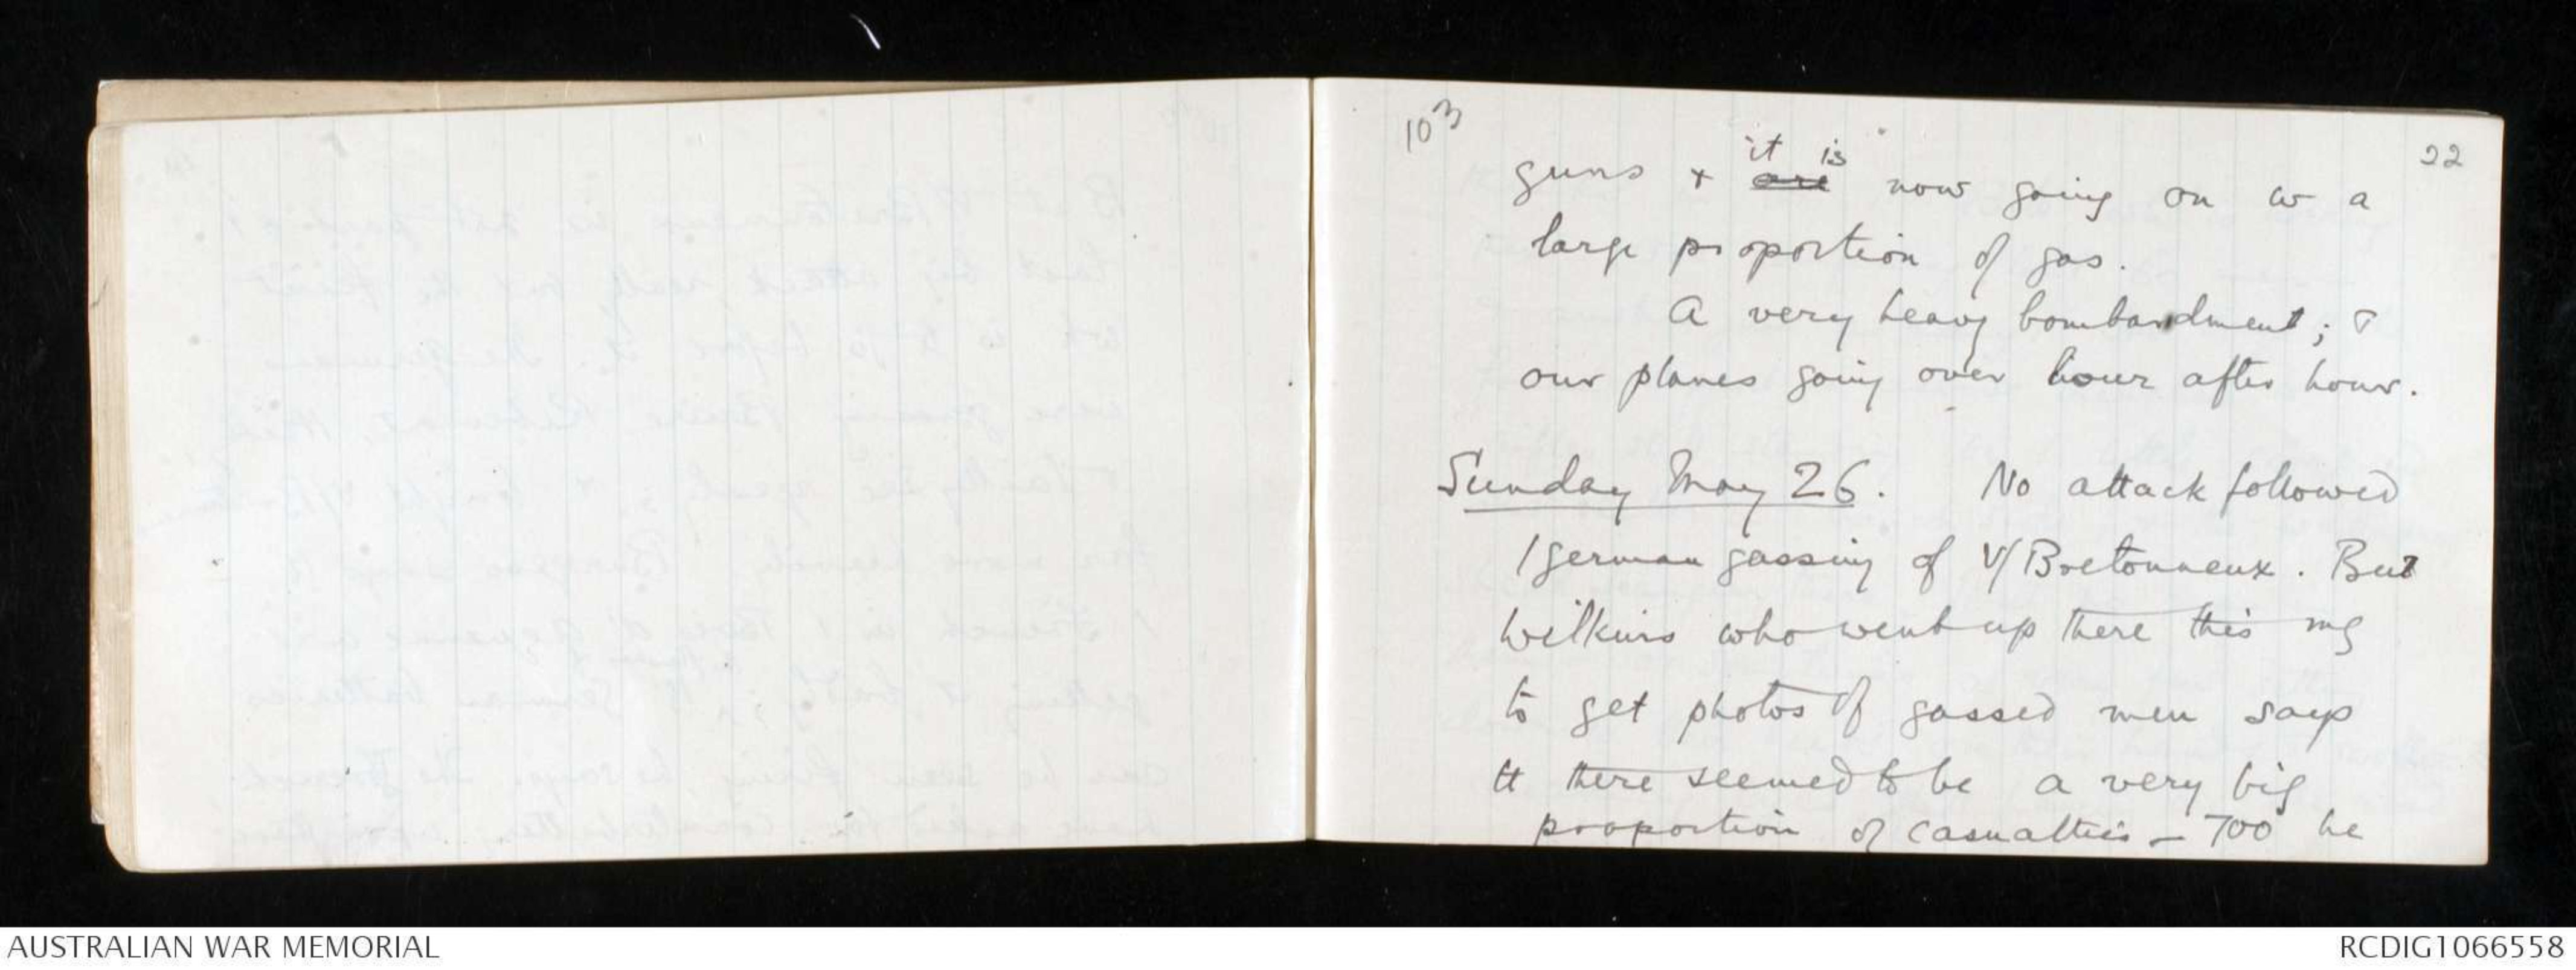 103
22
it is
guns & are now going on w a
large proportion of gas.
A very heavy bombardment; &
our planes going over hour after hour.
Sunday May 26. No attack followed
/ German gassing of V/Bretonneux. But
Wilkins who went up there this mg
to get photos of gassed men says
tt there seemed to be a very big
proportion of casualties – 700 he
AUSTRALIAN WAR MEMORIAL
RCDIG1066558